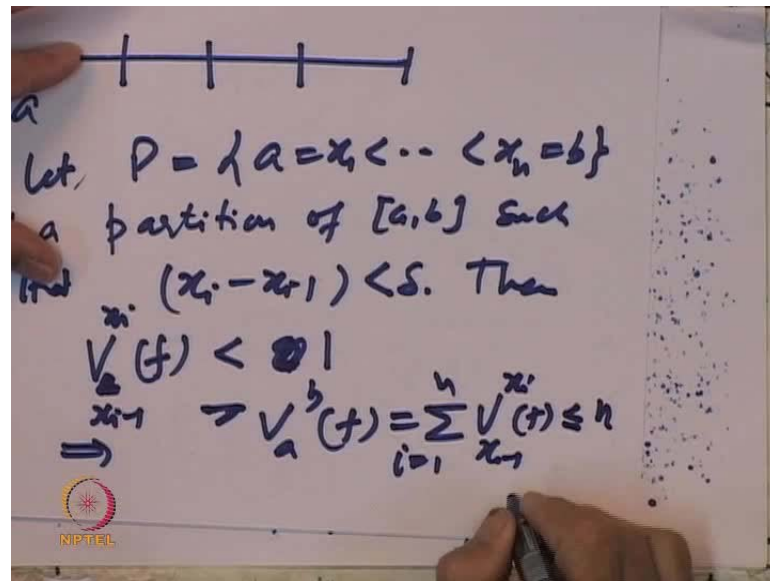 a
Let, P = { a = x₁ < ·· < xₙ = b}
a partition of [a,b] such
that (xᵢ − xᵢ₋₁) < δ. Then
V_{xᵢ₋₁}^{xᵢ} (f) < 1
⇒ V_a^b (f) = ∑_{i=1}^{n} V_{xᵢ₋₁}^{xᵢ} (f) ≤ n
NPTEL